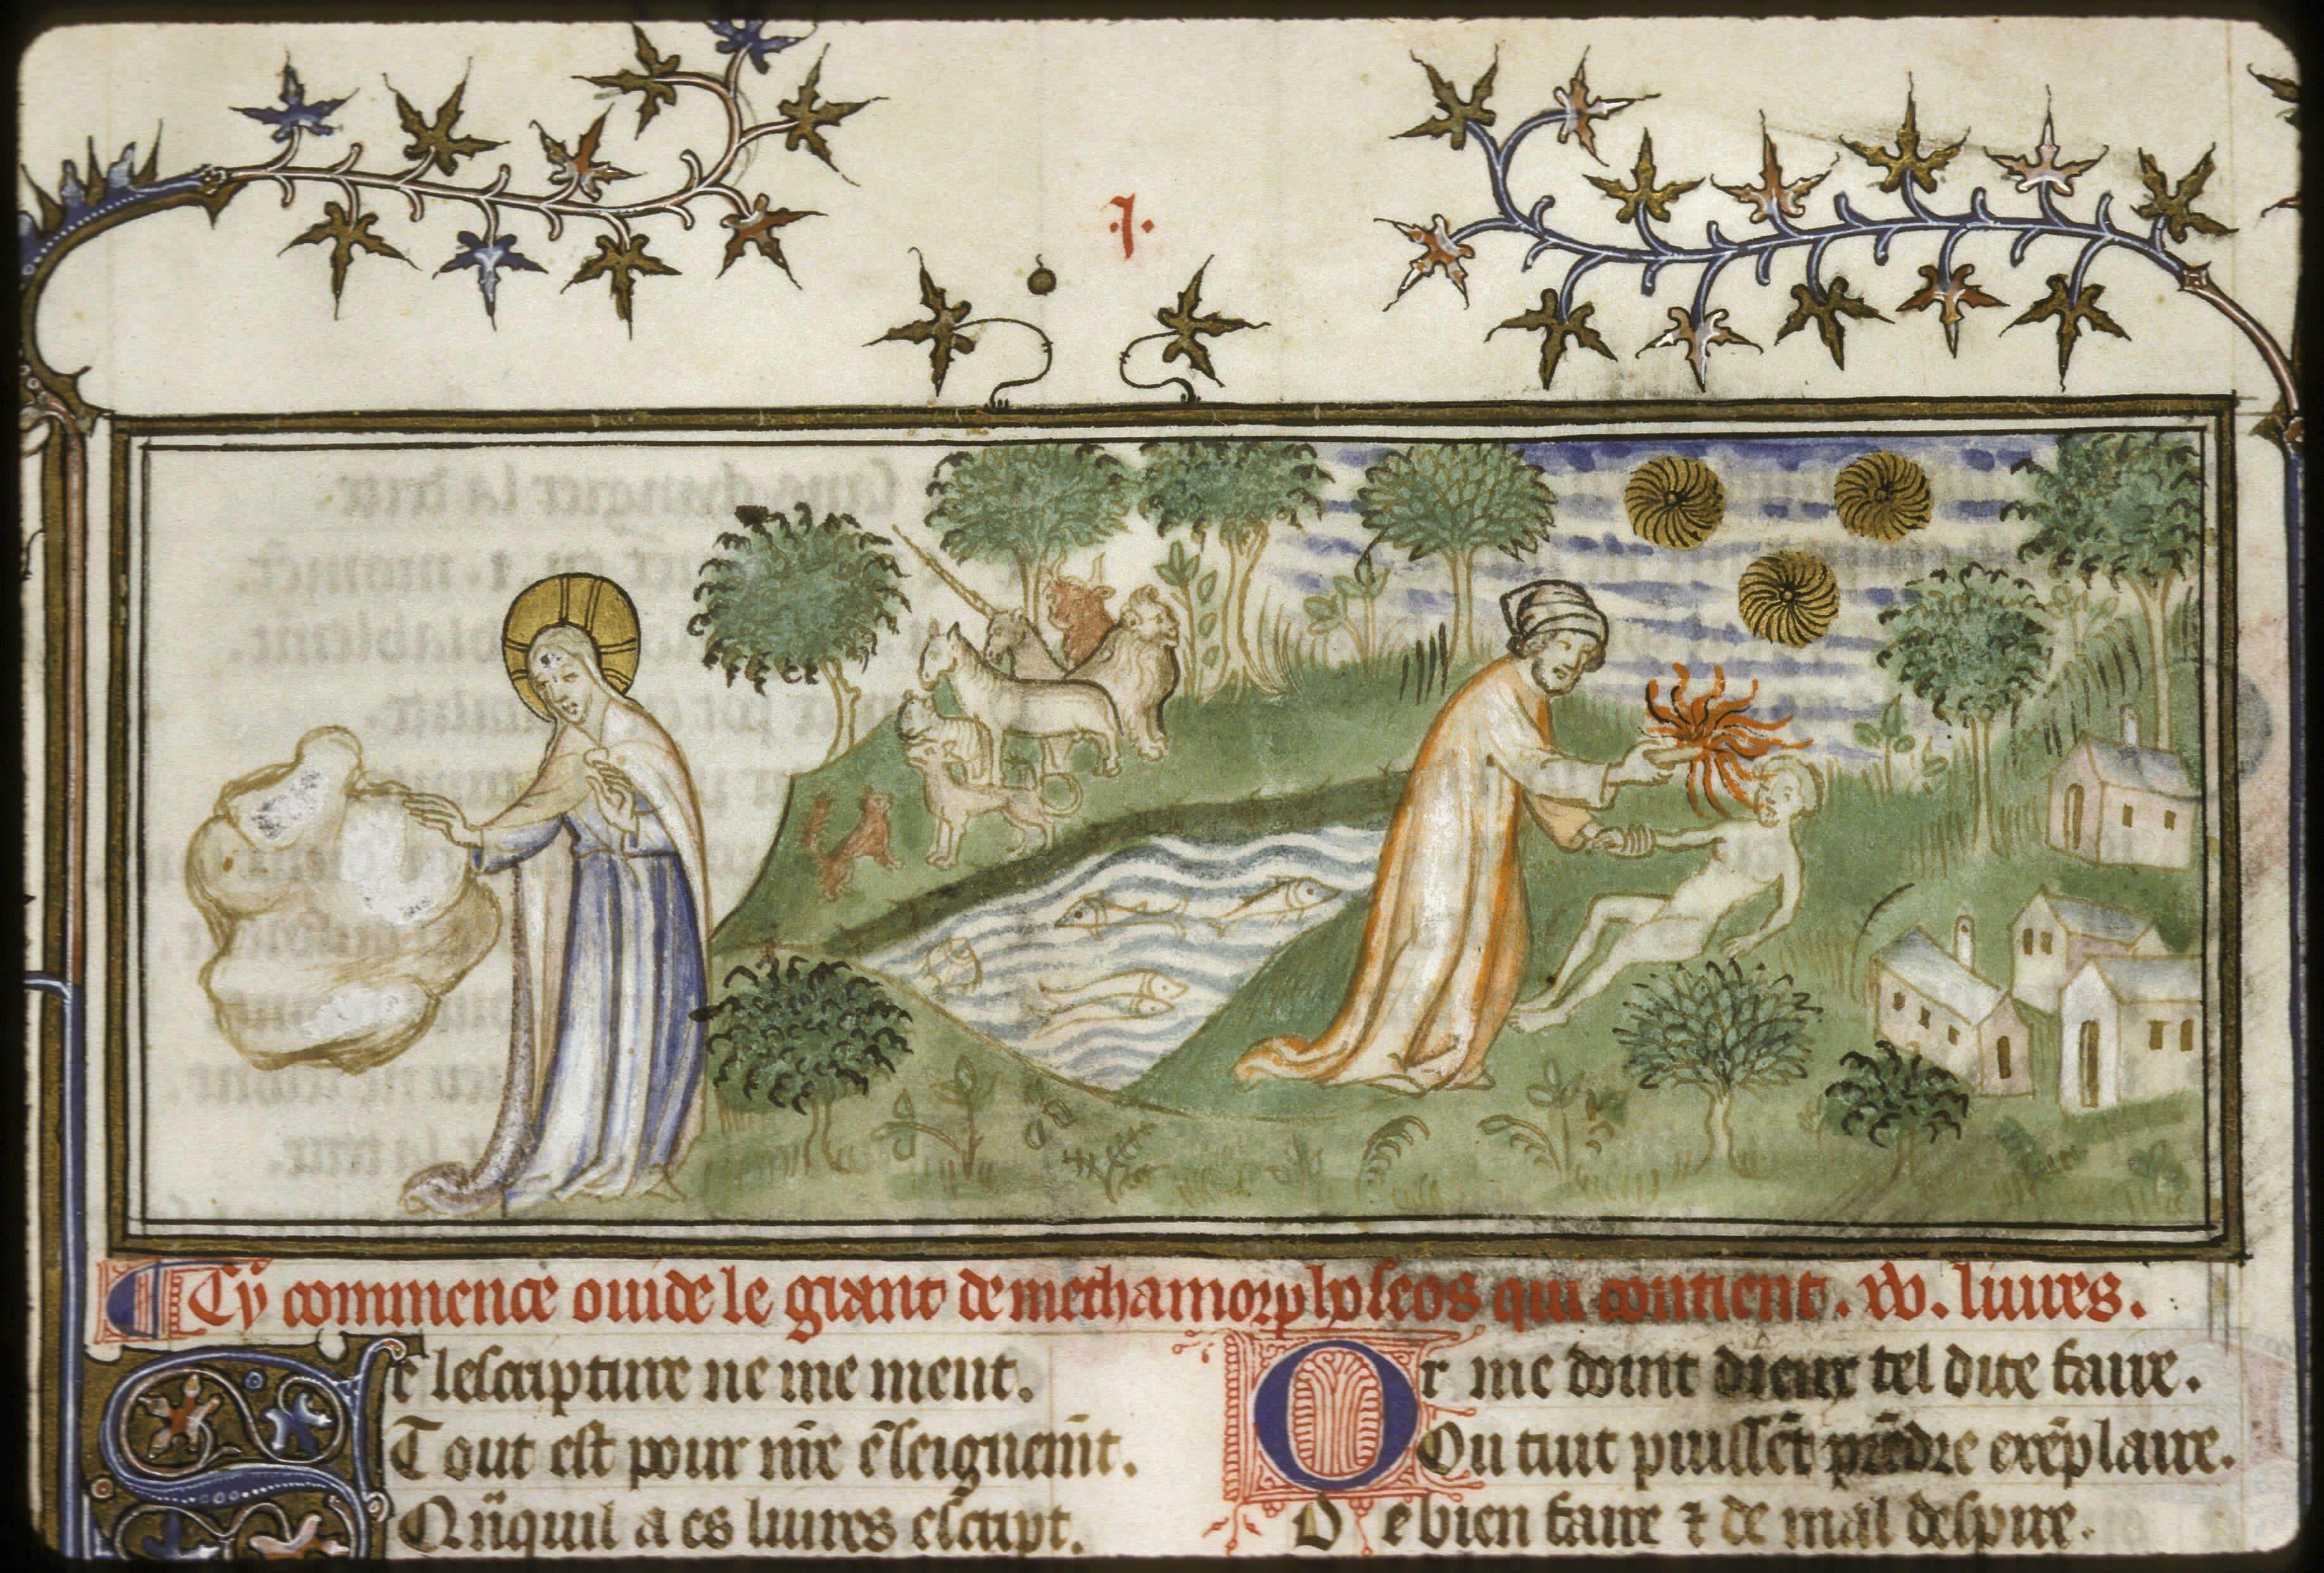 .I.
Cy commence ouide le grant de methamorphoseos qui contient . xv . liures .
Se lescripture ne me ment .
Tout est pour nr̄e ēseignemēt .
Q̄nquil a es liures escript .
Or me doint dieux tel dire faire .
Ou tuit puissēt prēdre exēplaire .
De bien faire ⁊ de mal despire .